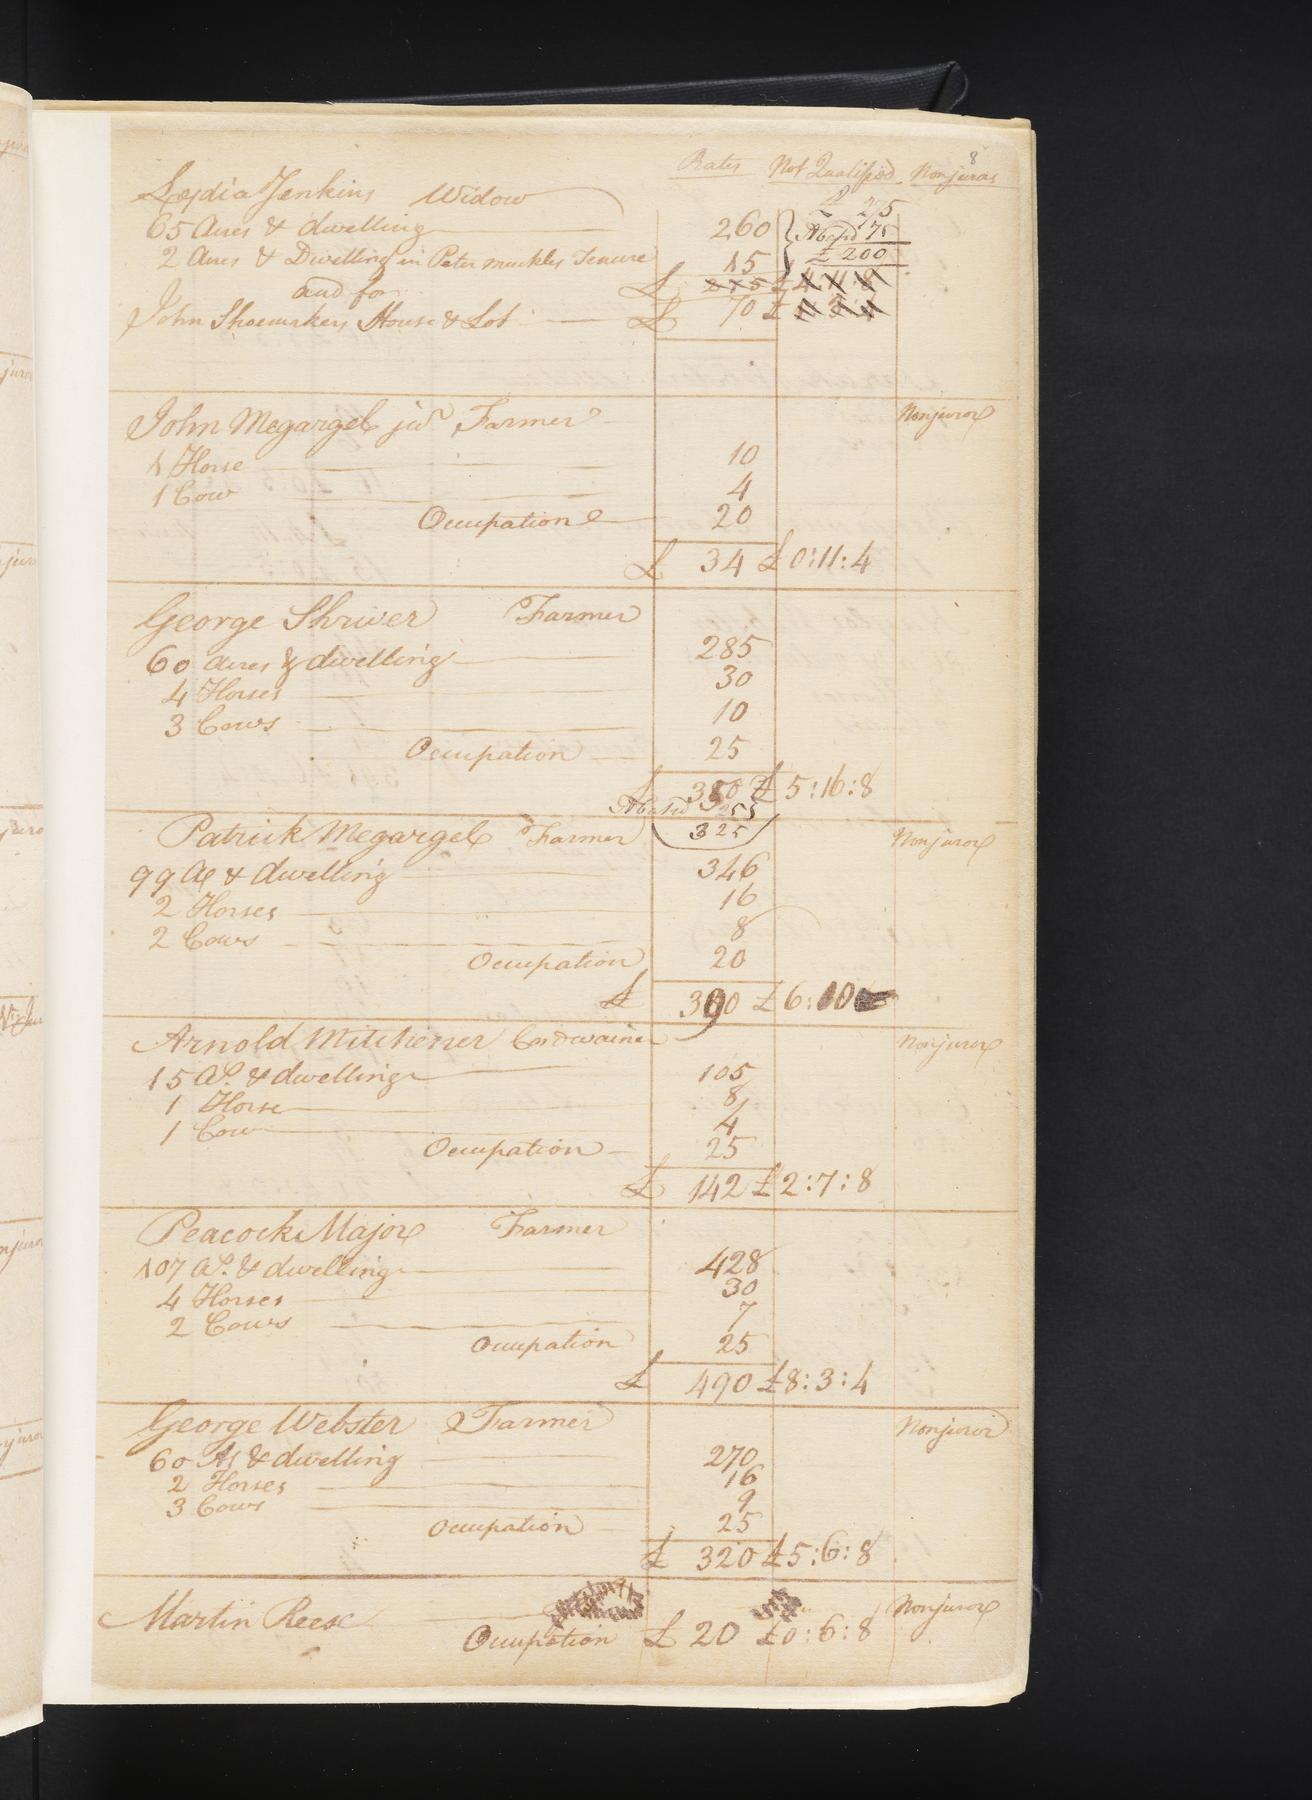 8
Rates Not Qualified Nonjuras
Lydia Jenkins Widow £ 275
65 Acres & dwelling 260 Abated 75
£ 200
2 Acres & Dwelling in Peter muckles Tenure 15
and for £ 275 £
John Shoemakers House & Lot £ 70 £
John Megargel junr Farmer Nonjuror
1 Horse 10
1 Cow 4
Occupation 20
£ 34 £ 0:11:4
George Shriver Farmer
60 acres & dwelling 285
4 Horses 30
3 Cows 10
Occupation 25
£ 350 £ 5:16:8
Abated 255
325
Patrick Megargel Farmer Nonjuror
99 As & dwelling 346
2 Horses 16
2 Cows 8
Occupation 20
£ 390 £ 6:10
Arnold Mitchener Cordwainer Nonjuror
15 As. & dwelling 105
1 Horse 8
1 Cow 4
Occupation 25
£ 142 £ 2:7:8
Peacock Major Farmer
107 As. & dwelling 428
4 Horses 30
2 Cows 7
Occupation 25
£ 490 £ 8:3:4
George Webster Farmer Nonjuror
60 As & dwelling 270
2 Horses 16
3 Cows 9
Occupation 25
£ 320 £ 5:6:8
Martin Reese Nonjuror
Occupation £ 20 £ 0:6:8